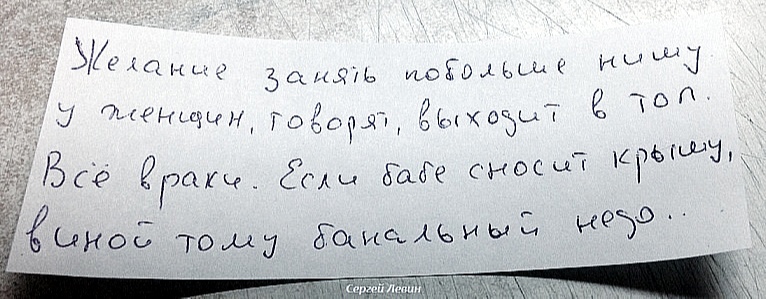 Желание занять побольше нишу
у женщин, говорят, выходит в топ.
Всё враки. Если бабе сносит крышу,
виной тому банальный недо..
Сергей Левин